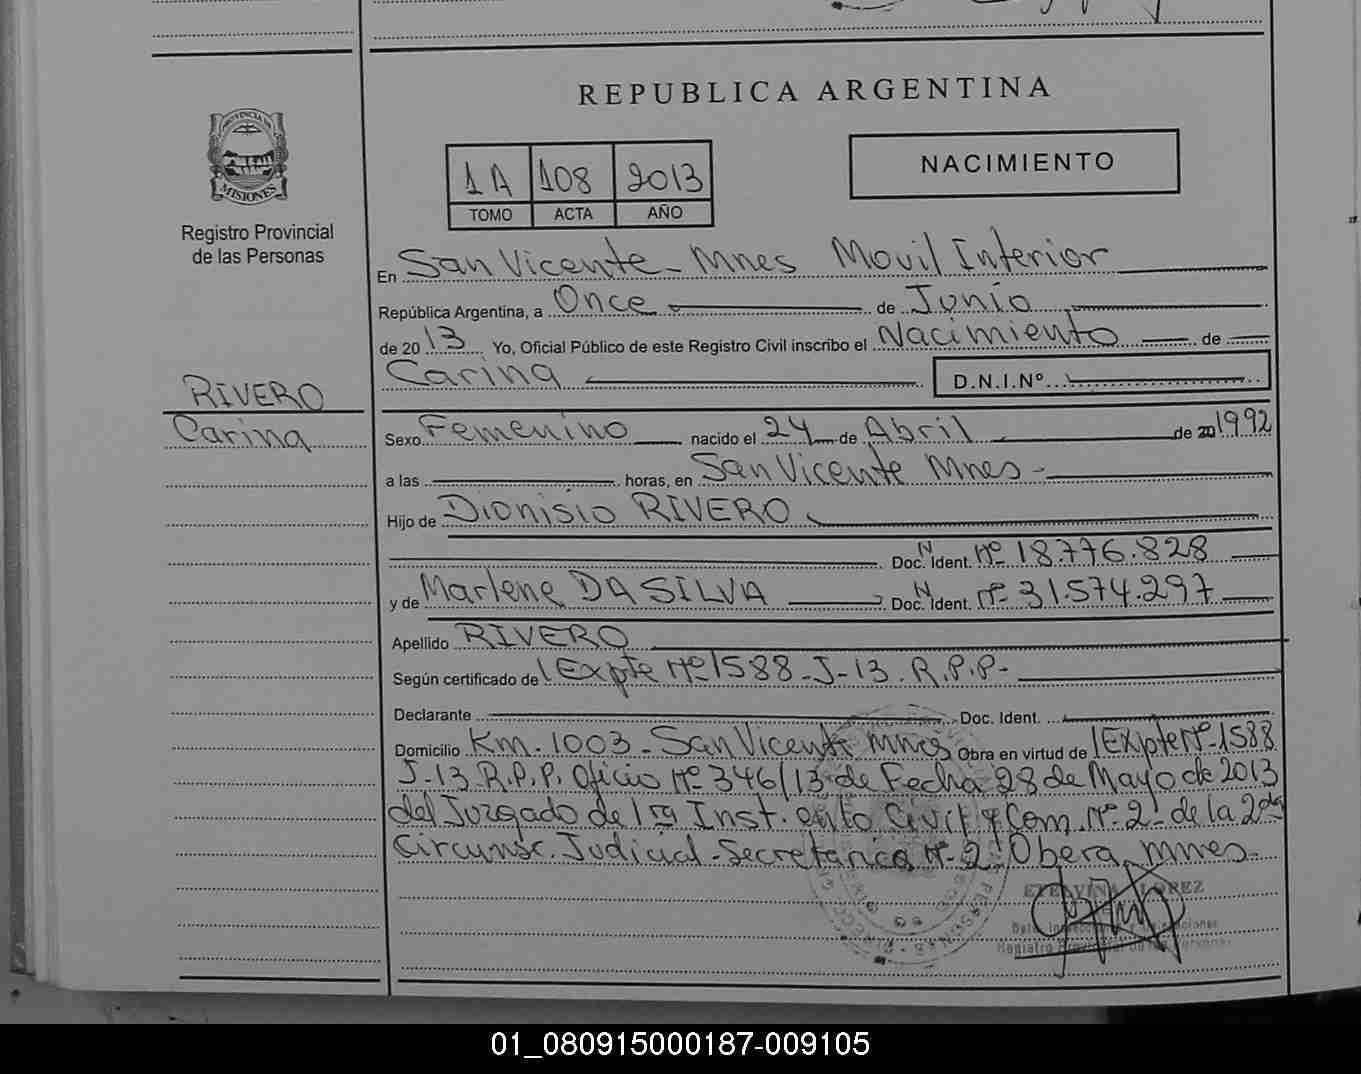 REPUBLICA ARGENTINA
PROVINCIA DE
MISIONES
Registro Provincial
de las Personas
1A 108 2013
TOMO ACTA AÑO
NACIMIENTO
En San Vicente - Mnes Movil Interior
República Argentina, a Once de Junio
de 2013 Yo, Oficial Público de este Registro Civil inscribo el Nacimiento de
Carina D.N.I.Nº
RIVERO
Carina
Sexo Femenino nacido el 24 de Abril de 20 1992
a las horas, en San Vicente Mnes -
Hijo de Dionisio RIVERO
Doc. N Ident. Nº 18.776.828
y de Marlene DA SILVA Doc. N Ident. nº 31.574.297
Apellido RIVERO
Según certificado de Expte Nº 1588-J-13. R.P.P-
Declarante Doc. Ident.
Domicilio Km. 1003 - San Vicente Mnes Obra en virtud de Expte Nº-1588
J-13 R.P.P. Oficio Nº 346/13 de Fecha 28 de Mayo de 2013
del Juzgado de 1ra Inst. en lo Civil y Com. Nº 2 - de la 2da
Circunsc. Judicial - Secretaria Nº 2 - Obera Mnes.
LOPEZ
01_080915000187-009105